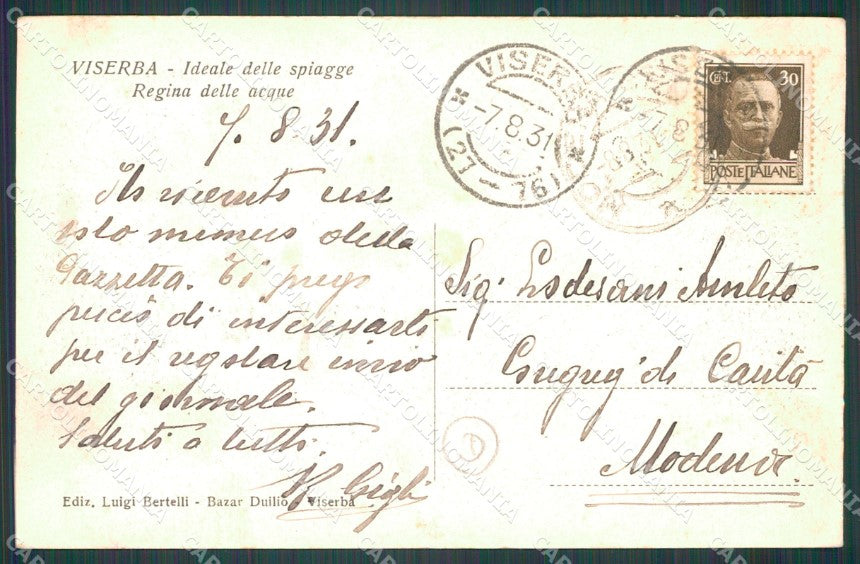 VISERBA - Ideale delle spiagge
Regina delle acque
7.8.31.
Ho ricevuto un
solo numero della
Gazzetta. Ti prego
perciò di interessarti
per il regolare invio
del giornale.
Saluti a tutti.
Gigli
Ediz. Luigi Bertelli - Bazar Duilio - Viserba
VISERBA
-7.8.31
CENT. 30
POSTE ITALIANE
Sig. Lodesani Amleto
Congreg. di Carità
Modena.
CARTOLINOMANIA